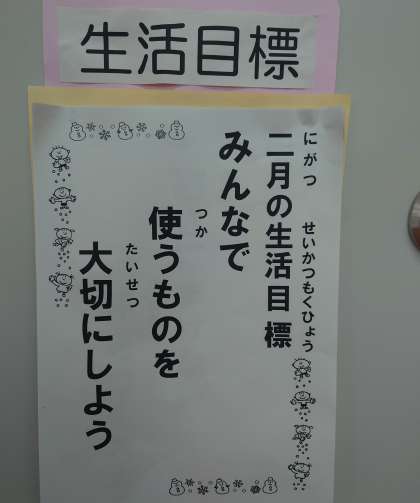 生活目標
にがつ せいかつもくひょう
二月の生活目標
みんなで
つか
使うものを
たいせつ
大切にしよう